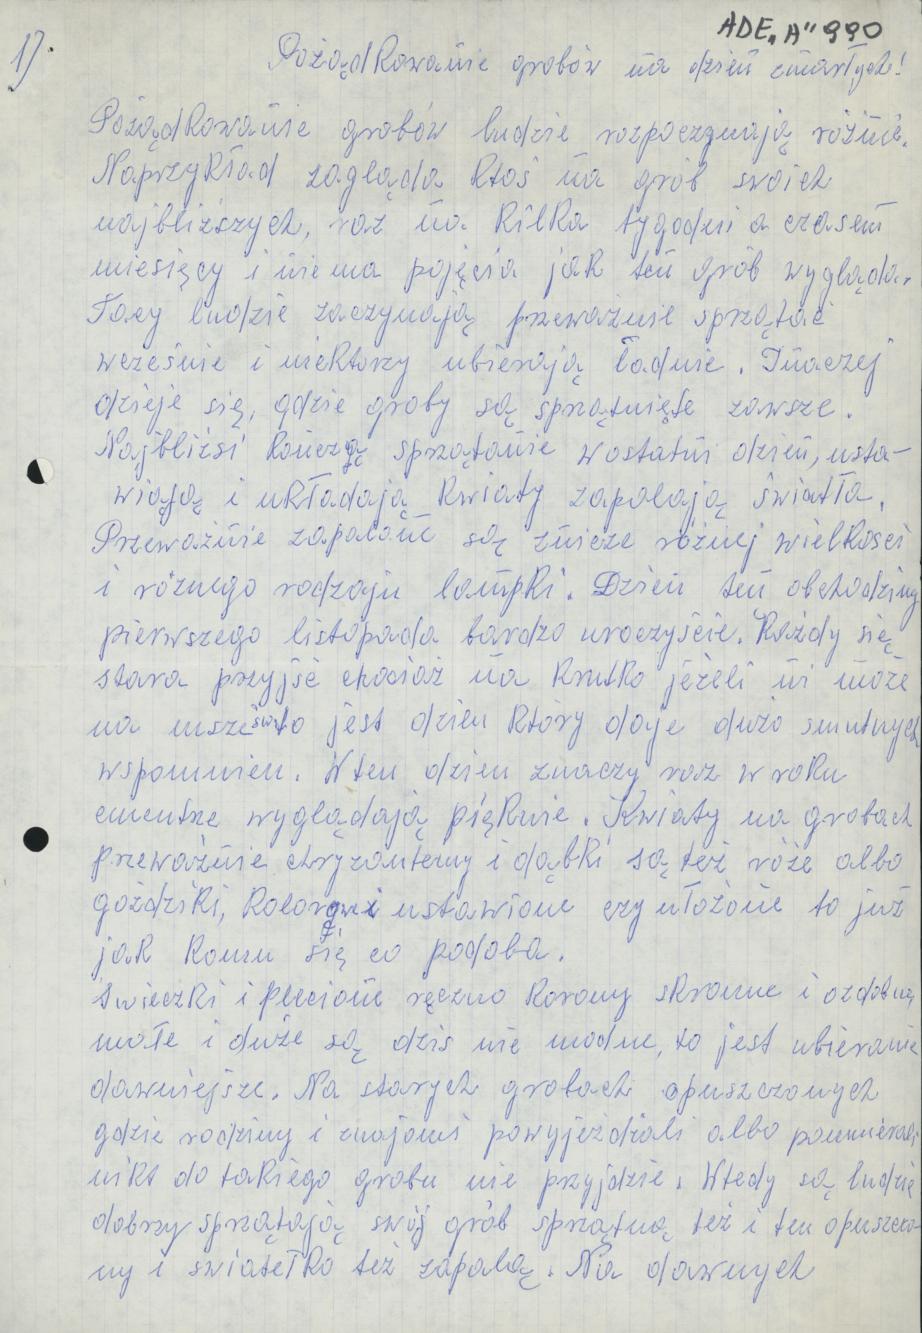 ADE„A" 990
1).
Pożądkowanie grobów na dzień zmarłych!
Pożądkowanie grobów ludzie rozpoczynają różnie.
Naprzykład zagląda ktoś na grób swoich
najbliższych, raz na kilka tygodni a czasem
miesięcy i niema pojęcia jak ten grób wygląda.
Tacy ludzie zaczynają przeważnie sprzątać
wcześnie i niektorzy ubierają ładnie. Inaczej
dzieje się, gdzie groby są sprzątnięte zawsze.
Najbliżsi kończą sprzątanie wostatni dzień, usta-
wiają i układają kwiaty zapalają światła.
Przeważnie zapalone są znicze różnej wielkosci
i różnego rodzaju lampki. Dzień ten obchodzimy
pierwszego listopada bardzo uroczyście. Każdy się
stara przyjść chociaż na krutko jeżeli ni może
na msze św. to jest dzien który daje dużo smutnych
wspomnien. Wten dzien znaczy raz w roku
cmentże wyglądają pięknie. Kwiaty na grobach
przeważnie chryzantemy i dąbki są też róże albo
goździki, kolorowe ustawione czy ułożone to już
jak komu się co podoba.
Swieczki i plecione ręczno korony skromne i ozdobne,
małe i duże są dzis nie modne, to jest ubieranie
dawniejsze. Na starych grobach opuszczonych
gdzie rodziny i znajomi powyjeżdżali albo poumierali
nikt do takiego grobu nie przyjdzie. Wtedy są ludzie
dobrzy sprzątają swój grób sprzątną też i ten opuszczo-
ny i swiatełko też zapalą. Na dawnych